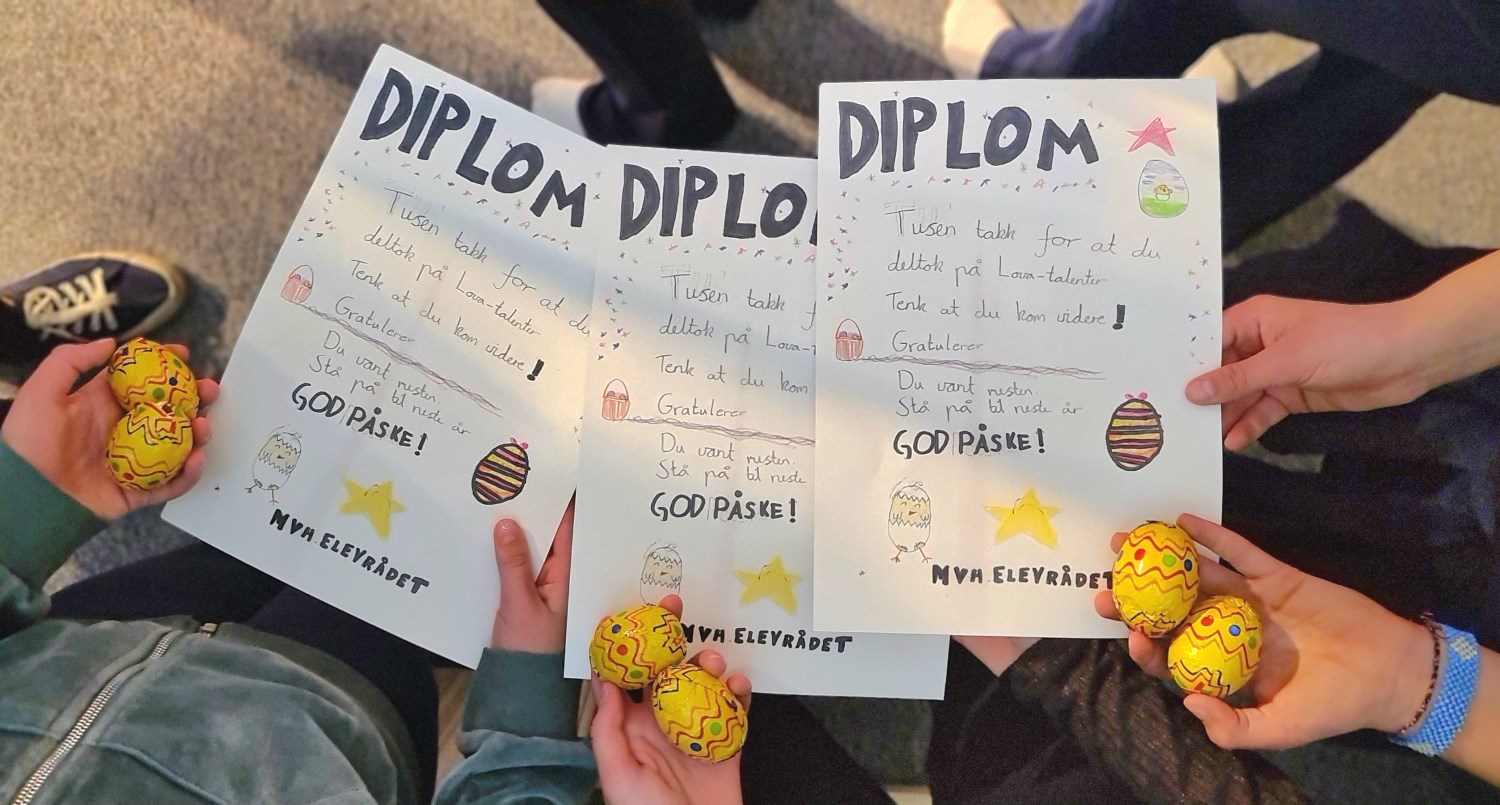 DIPLOM
Tusen takk for at du
deltok på Lova-talenter
Tenk at du kom videre!
Gratulerer
Du vant nesten.
Stå på til neste år
GOD PÅSKE!
MVH ELEVRÅDET
DIPLO
Tusen takk f
deltok på Lova-
Tenk at du kom
Gratulerer
Du vant nesten.
Stå på til neste
GOD PÅSKE!
MVH ELEVRÅDET
DIPLOM
Tusen takk for at du
deltok på Lova-talenter
Tenk at du kom videre!
Gratulerer
Du vant nesten.
Stå på til neste år
GOD PÅSKE!
MVH ELEVRÅDET